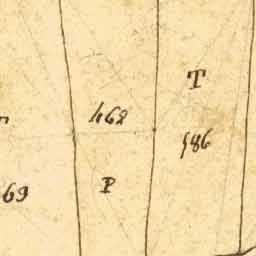 T
468
586
P
69